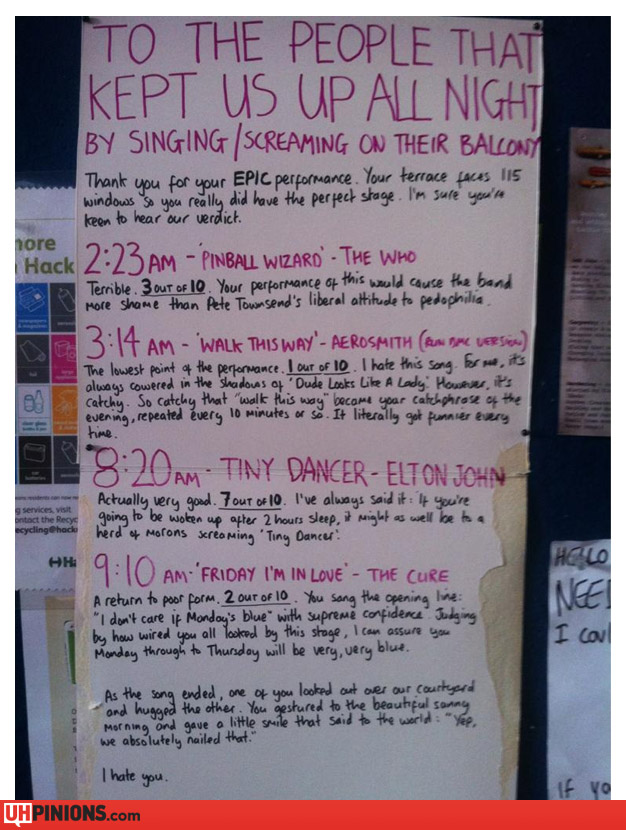 TO THE PEOPLE THAT
KEPT US UP ALL NIGHT
BY SINGING/SCREAMING ON THEIR BALCONY
Thank you for your EPIC performance. Your terrace faces 115
windows so you really did have the perfect stage. I'm sure you're
keen to hear our verdict.
2:23 AM - 'PINBALL WIZARD' - THE WHO
Terrible. 3 OUT OF 10. Your performance of this would cause the band
more shame than Pete Townsend's liberal attitude to pedophilia.
3:14 AM - 'WALK THIS WAY' - AEROSMITH (RUN DMC VERSION)
The lowest point of the performance. 1 out of 10. I hate this song. For me, it's
always cowered in the shadows of 'Dude Looks Like A Lady'. However, it's
catchy. So catchy that "walk this way" became your catchphrase of the
evening, repeated every 10 minutes or so. It literally got funnier every
time.
8:20 AM - TINY DANCER - ELTON JOHN
Actually very good. 7 OUT OF 10. I've always said it: If you're
going to be woken up after 2 hours sleep, it might as well be to a
herd of morons screaming 'Tiny Dancer'.
9:10 AM - 'FRIDAY I'M IN LOVE' - THE CURE
A return to poor form. 2 out of 10. You sang the opening line:
"I don't care if Monday's blue" with supreme confidence. Judging
by how wired you all looked by this stage, I can assure you
Monday through to Thursday will be very, very blue.
As the song ended, one of you looked out over our courtyard
and hugged the other. You gestured to the beautiful sunny
morning and gave a little smile that said to the world: "Yep,
we absolutely nailed that."
I hate you.
more
Hack
g services, visit
ontact the Recyc
ecycling@hack
Ha
HELLO
NEED
I cou
IF YO
UHPINIONS.com